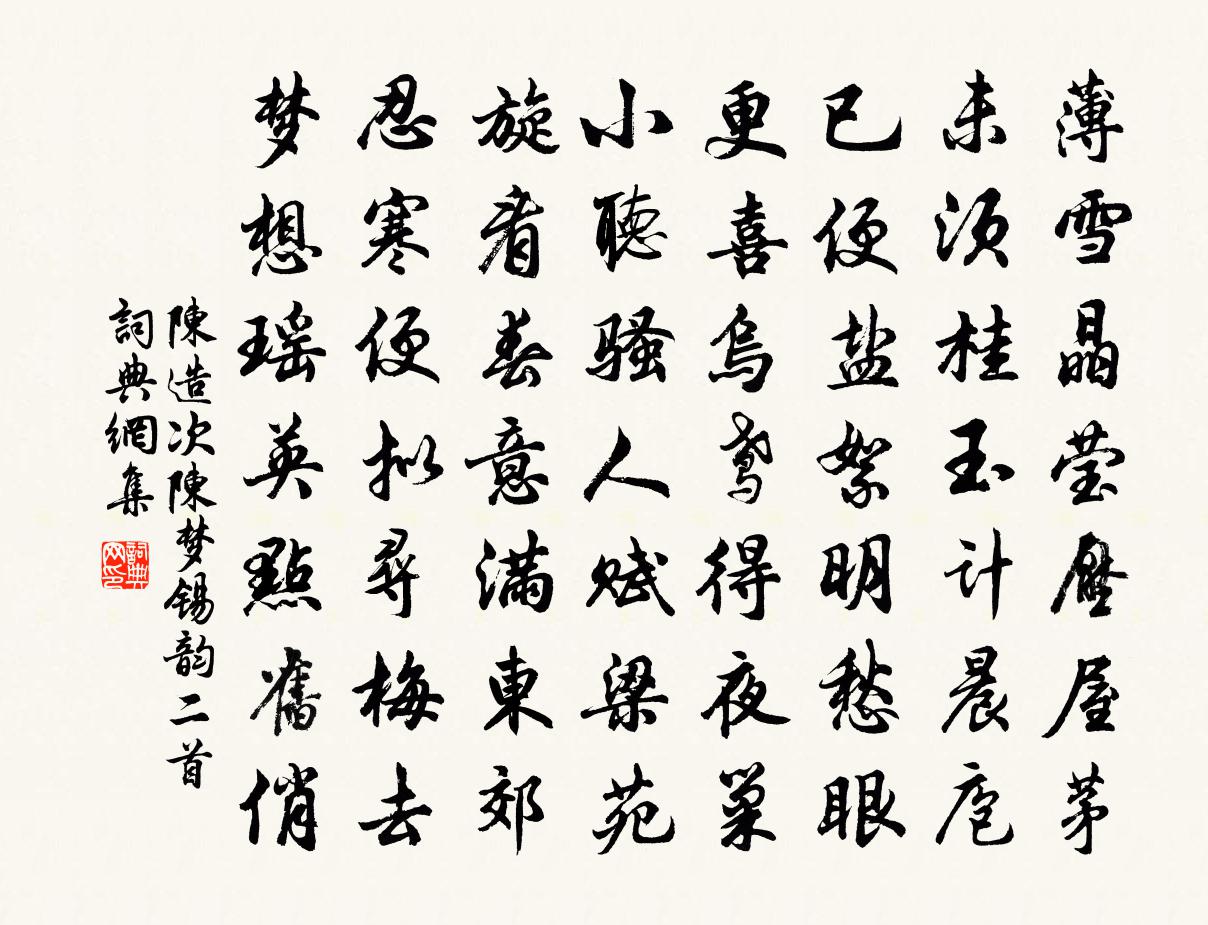 薄雪晶莹壓屋茅
未须桂玉计晨庖
已便盐絮明愁眼
更喜烏鸢得夜巢
小聽骚人赋梁苑
旋看春意满東郊
忍寒便拟尋梅去
梦想瑶英點舊俏
陳造次陳梦錫韵二首
詞典網集
詞典网印